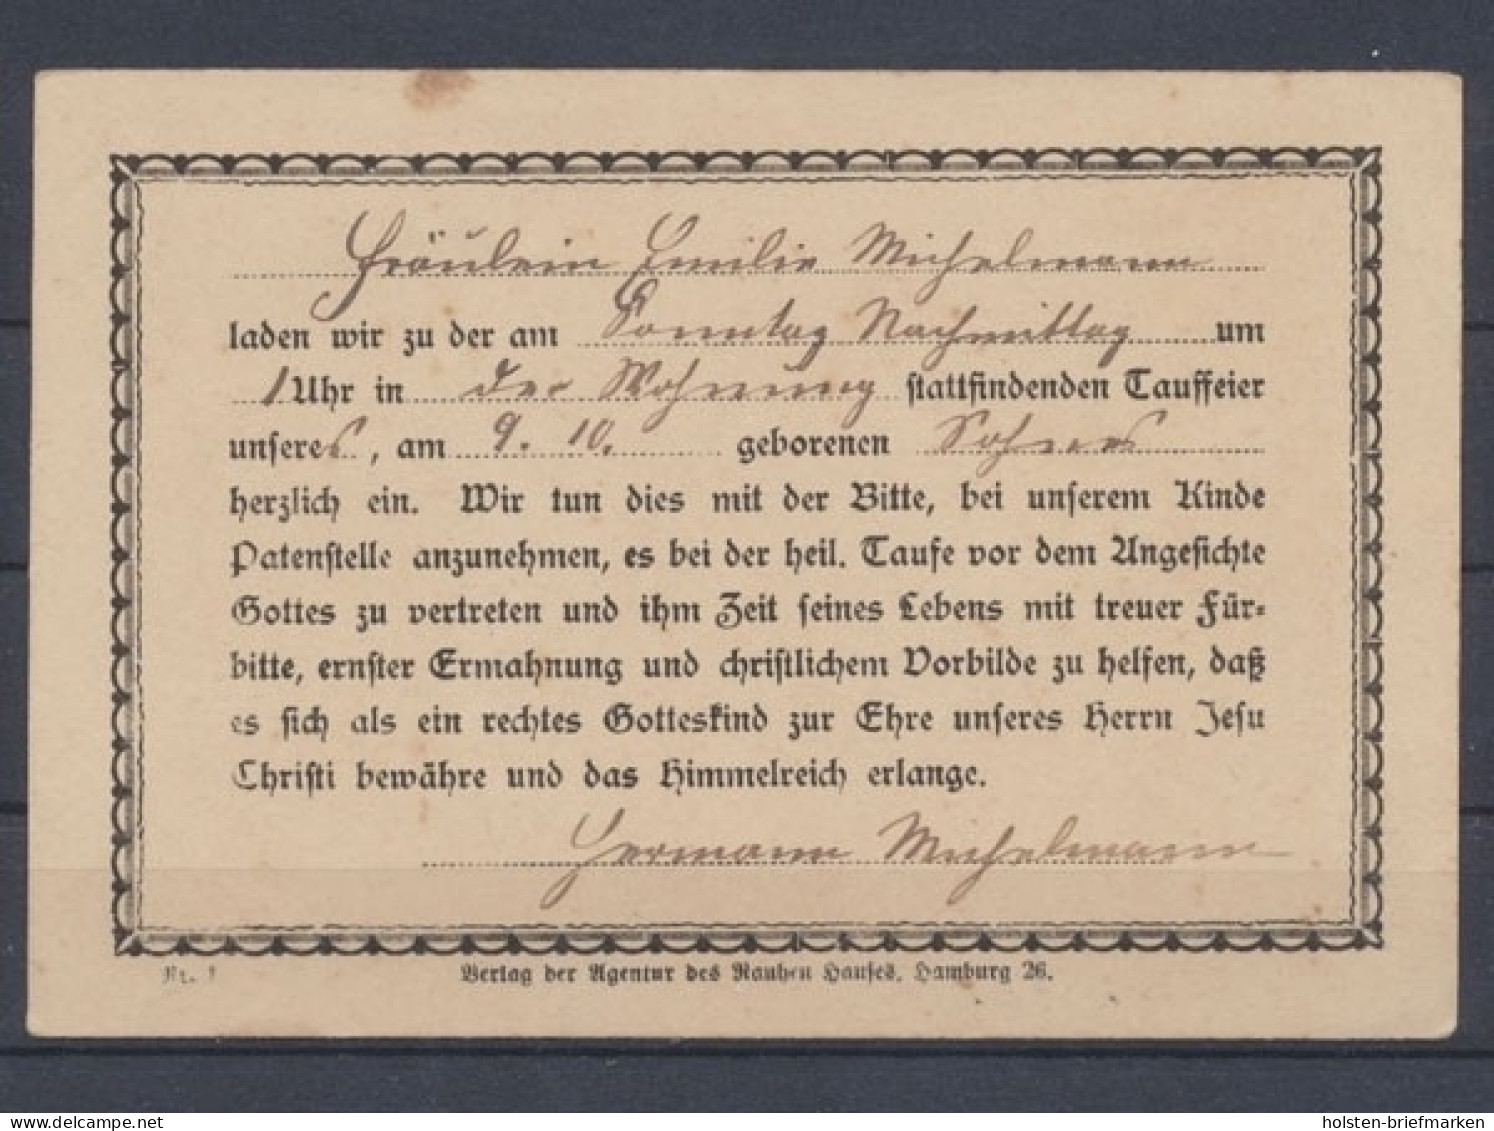 Fräulein Emilie Michelmann
laden wir zu der am Sonntag Nachmittag um
1 Uhr in der Wohnung stattfindenden Tauffeier
unseres, am 9. 10. geborenen Sohnes
herzlich ein. Wir tun dies mit der Bitte, bei unserem Kinde
Patenstelle anzunehmen, es bei der heil. Taufe vor dem Angesichte
Gottes zu vertreten und ihm Zeit seines Lebens mit treuer Für-
bitte, ernster Ermahnung und christlichem Vorbilde zu helfen, daß
es sich als ein rechtes Gotteskind zur Ehre unseres Herrn Jesu
Christi bewähre und das Himmelreich erlange.
Hermann Michelmann
Nr. 1 Verlag der Agentur des Rauhen Hauses, Hamburg 26.
www.delcampe.net holsten-briefmarken